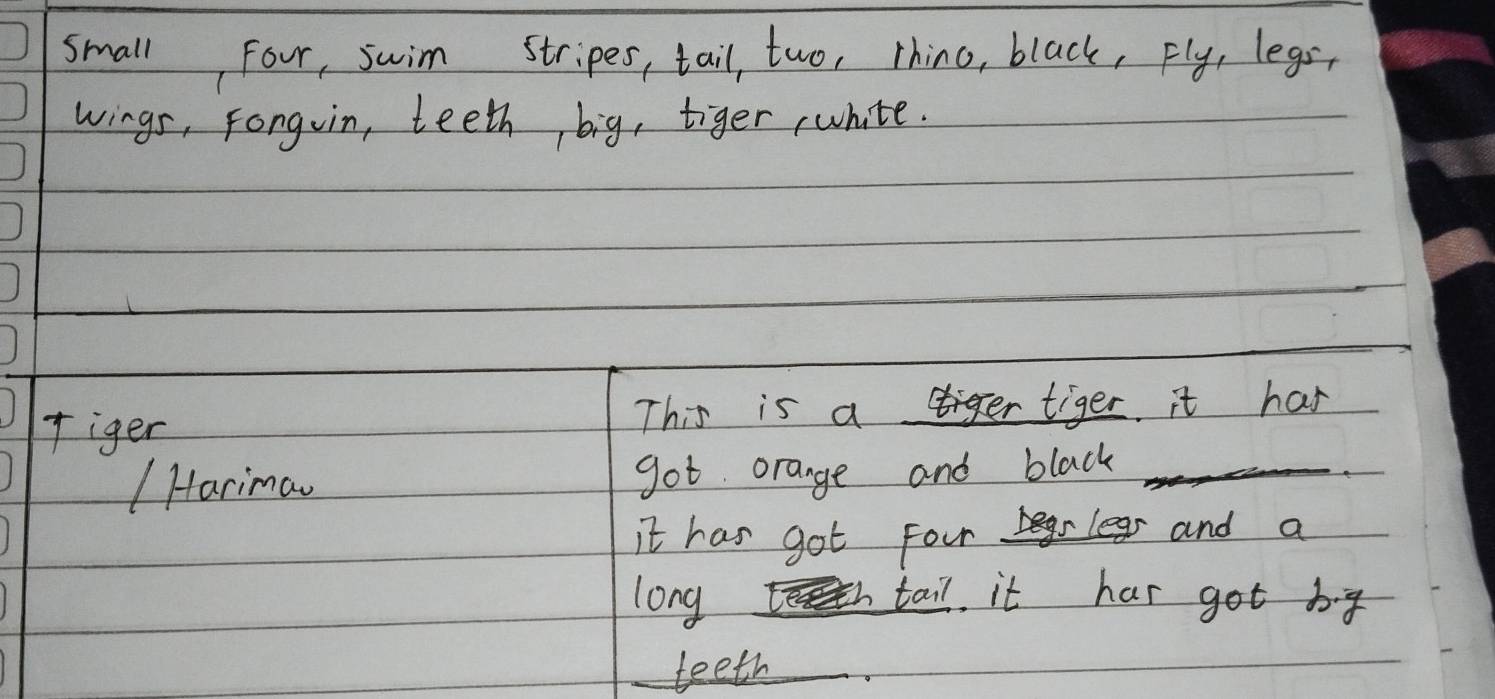 Small, Four, Swim Stripes, tail, two, rhino, black, Fly, legs,
wings, Fonguin, teeth, big, tiger, white.
Tiger
/ Harimau
This is a tiger tiger. it has
got. orange and black ______.
it has got Four legs legs and a
long teeth tail. it has got big
teeth.